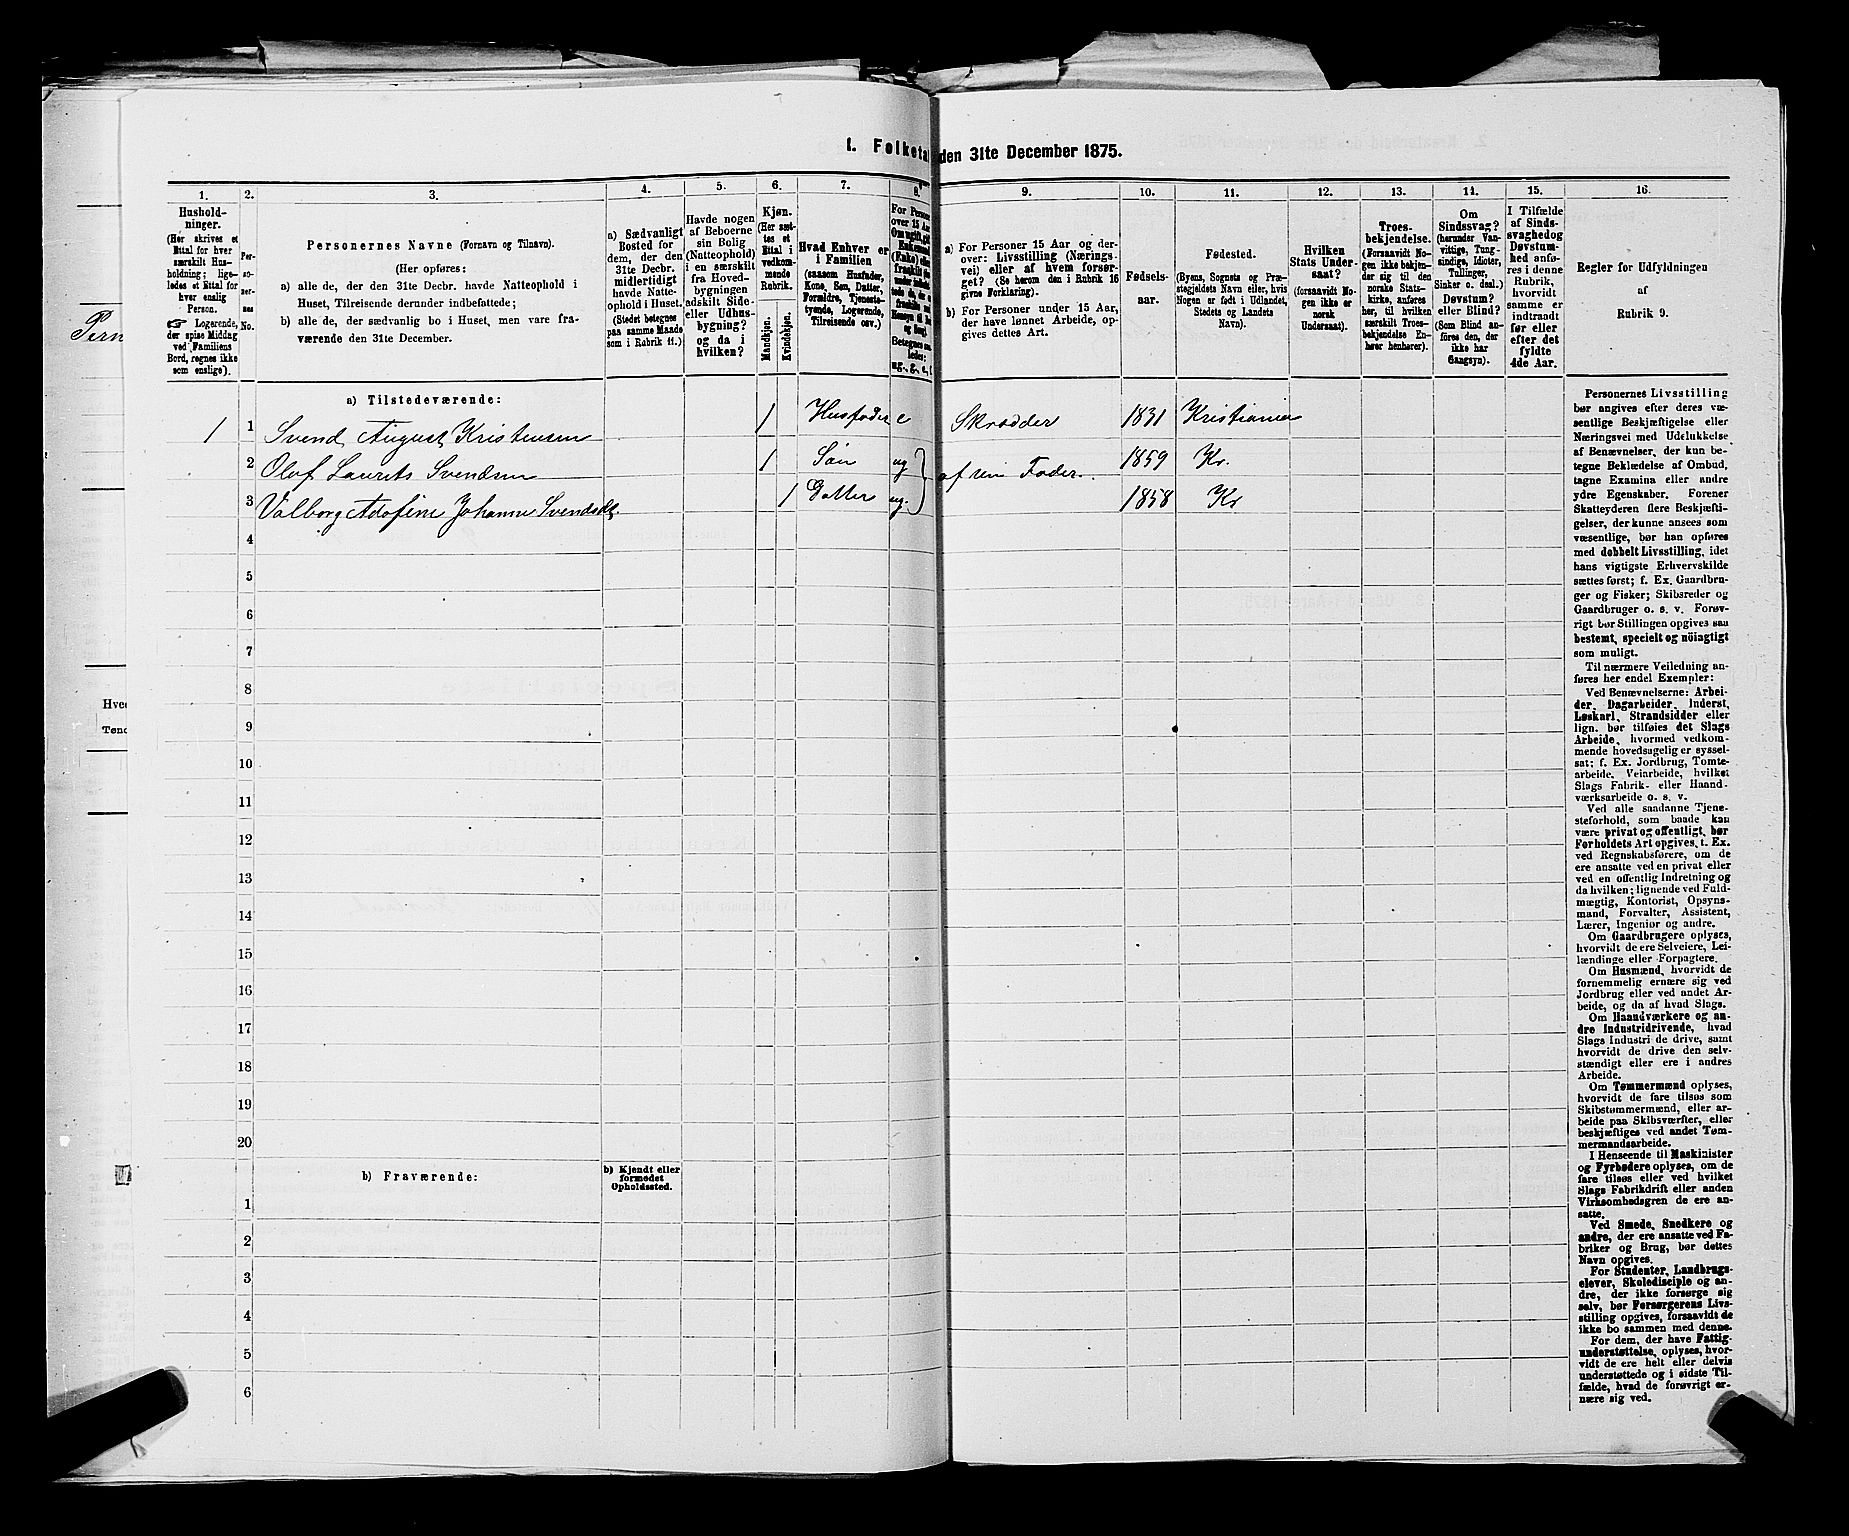 1. Følketa den 31te December 1875.
1. 2. 3. 4. 5. 6. 7. 8. 9. 10. 11. 12. 13. 14. 15. 16.
Hushold-
ninger.
(Her skrives et
Ettal for hver
særskilt Hus-
holdning; lige-
ledes et Ettal for
hver enslig
Person.
Logerende,
der spise Middag
ved Familiens
Bord, regnes ikke
som enslige).
Per-
so-
ner-
nes
No.
Personernes Navne (Fornavn og Tilnavn).
(Her opføres:
a) alle de, der den 31te Decbr. havde Natteophold i
Huset, Tilreisende derunder indbefattede;
b) alle de, der sædvanlig bo i Huset, men vare fra-
værende den 31te December.
a) Sædvanligt
Bosted for
dem, der den
31te Decbr.
midlertidigt
havde Natte-
ophold i Huset.
(Stedet betegnes
paa samme Maade
som i Rubrik 11.)
Havde nogen
af Beboerne
sin Bolig
(Natteophold)
i en særskilt
fra Hoved-
bygningen
adskilt Side-
eller Udhus-
bygning?
og da i
hvilken?
Kjøn.
(Her sæt-
tes et
Ettal i
vedkom-
mende
Rubrik.
Mandkjøn.
Kvindekjøn.
Hvad Enhver er
i Familien
(saasom Husfader,
Kone, Søn, Datter,
Forældre, Tjeneste-
tyende, Logerende,
Tilreisende osv.)
For Persone
over 15 Aar
ug., g., e., f.
a) For Personer 15 Aar og der-
over: Livsstilling (Nærings-
vei) eller af hvem forsør-
get. (Se herom den i Rubrik 16
givne Forklaring).
b) For Personer under 15 Aar,
der have lønnet Arbeide, op-
gives dettes Art.
Fødsels-
aar.
Fødested.
(Byens, Sognets og Præ-
stegjeldets Navn eller, hvis
Nogen er født i Udlandet,
Stedets og Landets
Navn).
Hvilken
Stats Under-
saat?
(forsaavidt No-
gen ikke er
norsk
Undersaat).
Troes-
bekjendelse.
(Forsaavidt No-
gen ikke bekjen-
der sig til den
norske Stats-
kirke, anføres
her, til hvilken
særskilt Troes-
bekjendelse En-
hver henhører).
Om
Sindssvag?
(herunder Van-
vittige, Tung-
sindige, Idioter,
Tullinger,
Sinker o. desl.)
Døvstum?
eller Blind?
(Som Blind an-
føres den, der
ikke har
Gangsyn).
I Tilfælde
af Sinds-
svaghedog
Døvstum-
hed anfø-
res i denne
Rubrik,
hvorvidt
samme er
indtraadt
før eller
efter det
fyldte
4de Aar.
Regler for Udfyldningen
af
Rubrik 9.
a) Tilstedeværende:
1 1 Svend August Kristensen 1 Husfader e Skrædder 1831 Kristiania
2 Olaf Laurits Svendsen 1 Søn ug af sin Fader. 1859 Kr.
3 Valborg Adofine Johanne Svendsdt. 1 Datter ug. 1858 Kr
4
5
6
7
8
9
10
11
12
13
14
15
16
17
18
19
20
b) Fraværende:
b) Kjendt eller
formodet
Opholdssted.
1
2
3
4
5
6
Personernes Livsstilling
bør angives efter deres væ-
sentlige Beskjæftigelse eller
Næringsvei med Udelukkelse
af Benævnelser, der kun be-
tegne Beklædelse af Ombud,
tagne Examina eller andre
ydre Egenskaber. Forener
Skatteyderen flere Beskjæfti-
gelser, der kunne ansees som
væsentlige, bør han opføres
med dobbelt Livsstilling, idet
hans vigtigste Erhvervskilde
sættes først; f. Ex. Gaardbru-
ger og Fisker; Skibsreder og
Gaardbruger o. s. v. Forøv-
rigt bør Stillingen opgives saa
bestemt, specielt og nöiagtigt
som muligt.
Til nærmere Veiledning an-
føres her endel Exempler:
Ved Benævnelserne: Arbei-
der, Dagarbeider, Inderst,
Løskarl, Strandsidder eller
lign. bør tilføies det Slags
Arbeide, hvormed vedkom-
mende hovedsagelig er syssel-
sat; f. Ex. Jordbrug, Tomte-
arbeide, Veiarbeide, hvilket
Slags Fabrik- eller Haand-
værksarbeide o. s. v.
Ved alle saadanne Tjene-
steforhold, som baade kan
være privat og offentligt, bør
Forholdets Art opgives, t. Ex.
ved Regnskabsførere, om de
ere ansatte ved en privat eller
ved en offentlig Indretning og
da hvilken; lignende ved Fuld-
mægtig, Kontorist, Opsyns-
mand, Forvalter, Assistent,
Lærer, Ingeniør og andre.
Om Gaardbrugere oplyses,
hvorvidt de ere Selveiere, Lei-
lændinge eller Forpagtere.
Om Husmænd, hvorvidt de
fornemmelig ernære sig ved
Jordbrug eller ved andet Ar-
beide, og da af hvad Slags.
Om Haandværkere og an-
dre Industridrivende, hvad
Slags Industri de drive, samt
hvorvidt de drive den selv-
stændigt eller ere i andres
Arbeide.
Om Tømmermænd oplyses,
hvorvidt de fare tilsøs som
Skibstømmermænd, eller ar-
beide paa Skibsværfter, eller
beskjæftiges ved andet Tøm-
mermandsarbeide.
I Henseende til Maskinister
og Fyrbødere oplyses, om de
fare tilsøs eller ved hvilket
Slags Fabrikdrift eller anden
Virksomhedsgren de ere an-
satte.
Ved Smede, Snedkere og
andre, der ere ansatte ved Fa-
briker og Brug, bør dettes
Navn opgives.
For Studenter, Landbrugs-
elever, Skoledisciple og an-
dre, der ikke forsørge sig
selv, bør Forsørgerens Livs-
stilling opgives, forsaavidt de
ikke bo sammen med denne.
For dem, der have Fattig-
understøttelse, oplyses, hvor-
vidt de ere helt eller delvis
understøttede og i sidste Til-
fælde, hvad de forøvrigt er-
nære sig ved.
Pern
Hved
Tønd